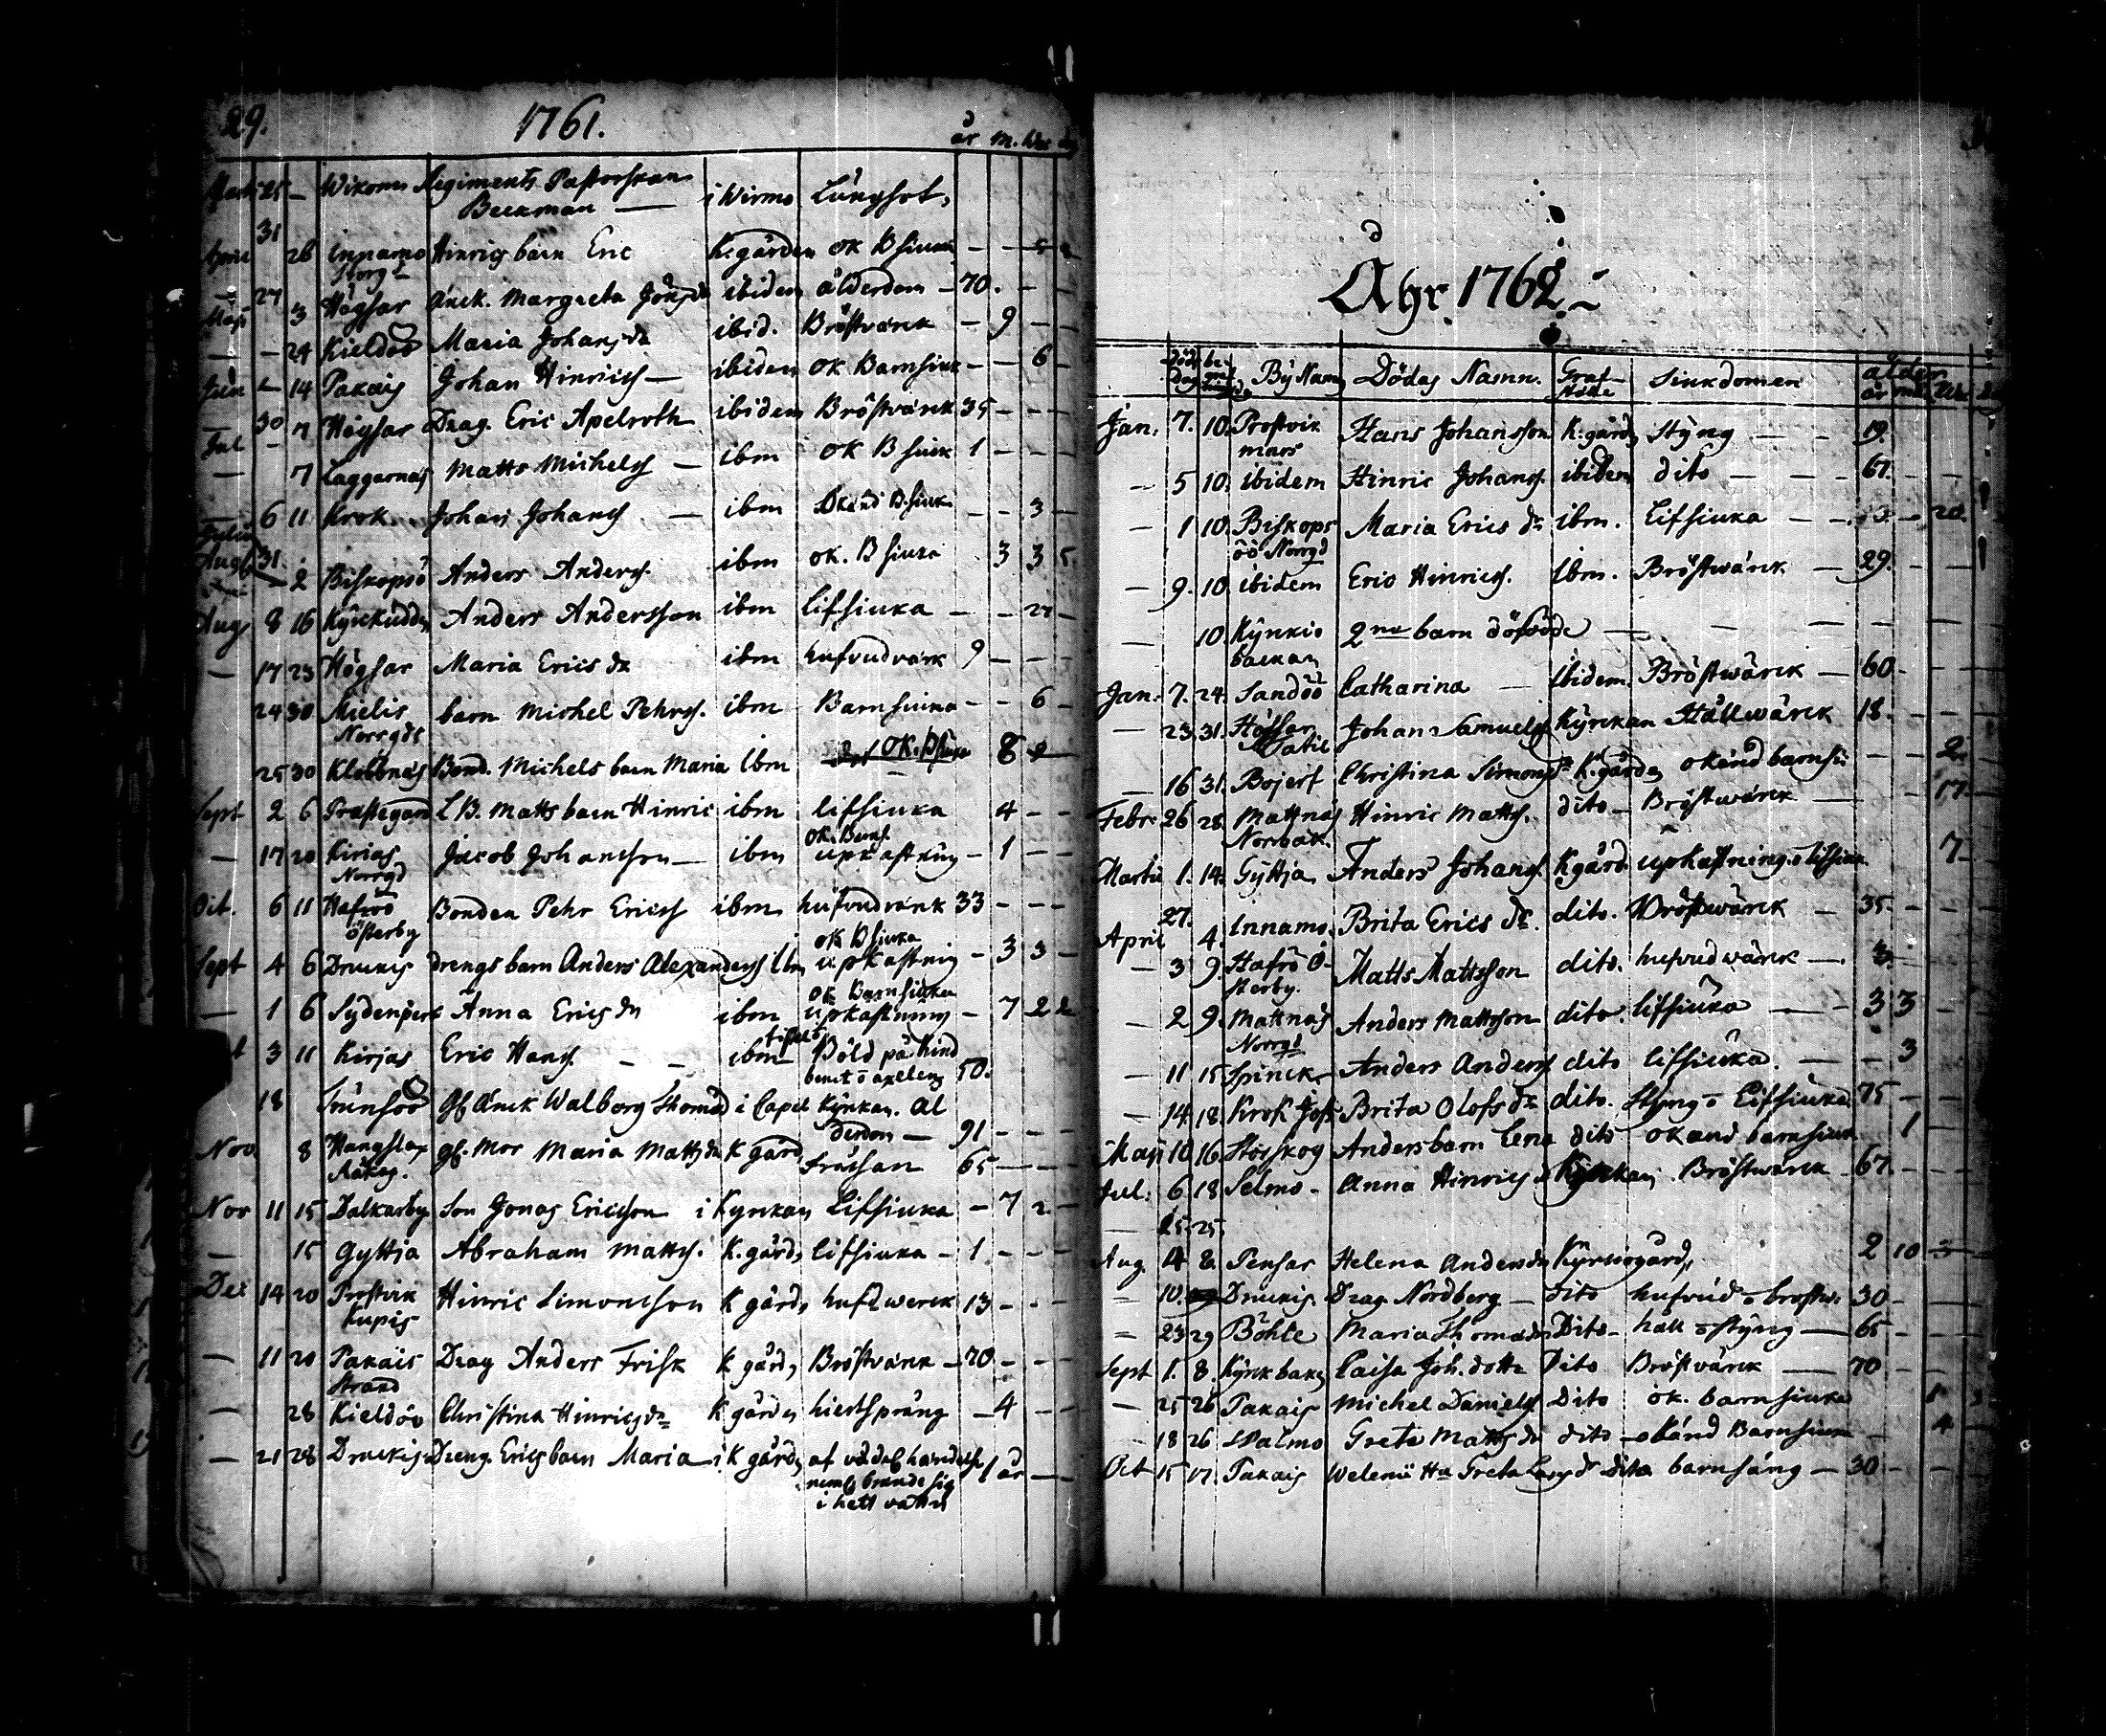 29. 1761.
år m. W. d
Mart 25 — Wikom Regiments Pastorskan
Beckman — i Wirmo Lungsot,
31
Apric 26 innamo Hinrics barn Eric K: gården ok B siuka — — 5
Storg
— 27 Högsar Änck. Margreta ibidem ålderdom — 70. — —
Maj 3
— — 24 Kieldöö Maria Johansdr ibid. Bröstvärck — 9 — —
Jun — 14 Pakais Johan Hinrics — ibidem ok Barnsiuk — — 6 —
— 30 7 Högsar Drag. Eric Apelroth ibidem Bröstvärck 35 — — —
Jul —
— 7 Laggarnäs Matts Michels — ibm ok B siuk 1 — — —
— 6 11 Krok Johan Johans — ibm Okänd B. siuk — — 3 —
Julii
Aug 31. 2 Biskopsö Anders Anders. ibm ok. B siuka 3 3 5
Aug 8 16 Kyrckudden Anders Andersson ibm lifsiuka — — 27 —
— 17 23 Högsar Maria Erics dr ibm hufvudvärk 9 — — —
24 30 Mielis barn Michel Pehrs. ibm Barnsiuka — — 6 —
Norrgds
25 30 Klobbnäs Bond. Michels barn Maria ibm ok. Bsiuka 8 2
Sept 2 6 Prästegard L B. Matts barn Hinric ibm lifsiuka 4 — —
— 17 20 Kirias Jacob Johansson — ibm ok. Barns.
Norrgd upkastning — 1 — —
Oct. 6 11 Hafröö Bonden Pehr Erics ibm hufvudvärk 33 — — —
österby
Sept 4 6 Druckis drengs barn Anders Alexanders ibm ok B siuka
upkastnig — 3 3 —
— 1 6 Sydenpert Anna Erics dr ibm ok Barnsiuka
upkastning — 7 2 2
3 11 Kirjas Eric Hans. — — ibm Böld på kind
benet o axlen 50.
18 Trunsöö Gl. Änck Walborg Thomasd i Capel kyrkan. Al
derdom — 91 — — —
Nov 8 Hangslax gl. Mor Maria Matts dr K gård, Fråssan 65 — — —
Nov 11 15 Dalkarby Son Jonas Ericsson i Kyrckan Lifsiuka — 7 2 —
— 15 Gyttja Abraham Matts. K. gård, lifsiuka — 1 — — —
Dec 14 20 Prostvik Hinric Simonsson K gård, hufdwerck 13 — — —
Kupis
— 11 20 Pakais Drag Anders Frisk K gård, Bröstvärck — 70 — — —
Strand
— 28 Kieldöö Christina Hinrics dr K gården hiertsprång — 4 — —
— 21 28 Druckis Dreng Erics barn Maria i K gård, af händelse 1 år —
neml. brände sig
i hett vattn
Åhr 1762
Död Dag By Namn Dödas Namn. Graf- Siukdomen ålder
städe år mån. W.
Jan. 7. 10. Prostvik Hans Johansson K: gård, Styng — — 19.
mars
— 5 10. ibidem Hinric Johans. ibidem dito — — — 67. — —
— 1 10. Biskops Maria Erics dr ibm. Lifsiuka — — — 20.
öö Norrgd
— 9. 10 ibidem Eric Hinrics. ibm. Bröstwärck — 29. — —
— 10. Kyrkio 2ne barn dödföde — — — —
backan
Jan. 7. 24. Sandöö Catharina — ibidem. Bröstwärck — 60 — — —
— 23. 31. Högsar Johan Samuels. Kyrckan Hållwärck 18. — —
— 16 31. Bojert Christina Simons dr K: gården okänd barnsi: — — 2.
Febr. 26 28. Mattnäs Hinric Matts. dito — Bröstwärck — — 17 —
Norbak.
Martii 1. 14. Gyttja Anders Johans. Kgård. upkastning. o lifsiuka 7 —
27.
April 4. Innamo. Brita Erics dr. dito. Bröstwärck — 35 — —
— 3 9. Hafrö Ö- Matts Mattsson dito. hufvudwärck — 3. —
sterby.
— 2 9. Mattnäs Anders Mattsson dito. lifsiuka — — 3 3 —
Norrgd
— 11 15 Spinck Anders Anders. dito lifsiuka. — — 3
— 14. 18. Krok Brita Olofs dr dito. Styng o Lifsiuka 75 — —
Maji 10 16. Storskog Anders barn Lena dito okänd barnsiuk 1 —
Jul: 6 18 Selmo — Anna Hinrics dr Kyrckan. Bröstwärck — 67. — — —
— 25. 25.
Aug. 4 8. Pensar Helena Andersdr Kyrckogård, 2 10 3
= 10. Druckis. Drag. Nordberg — dito hufvud o bröstw. 30 —
= 23 29 Böhle Maria Thomasdr Dito — håll o styng — 65 —
Sept 1. 8. Kyrk baken Caisa Joh. dottr Dito Bröstvärck — 70 —
— 25 26 Pakais Michel Daniels. Dito ok. barnsiuka 1
— 18 26 Greta Matts dr dito — okänd Barnsiuka — 4 —
Oct 15 17. Pakais Greta dito barnsäng — 30 — —